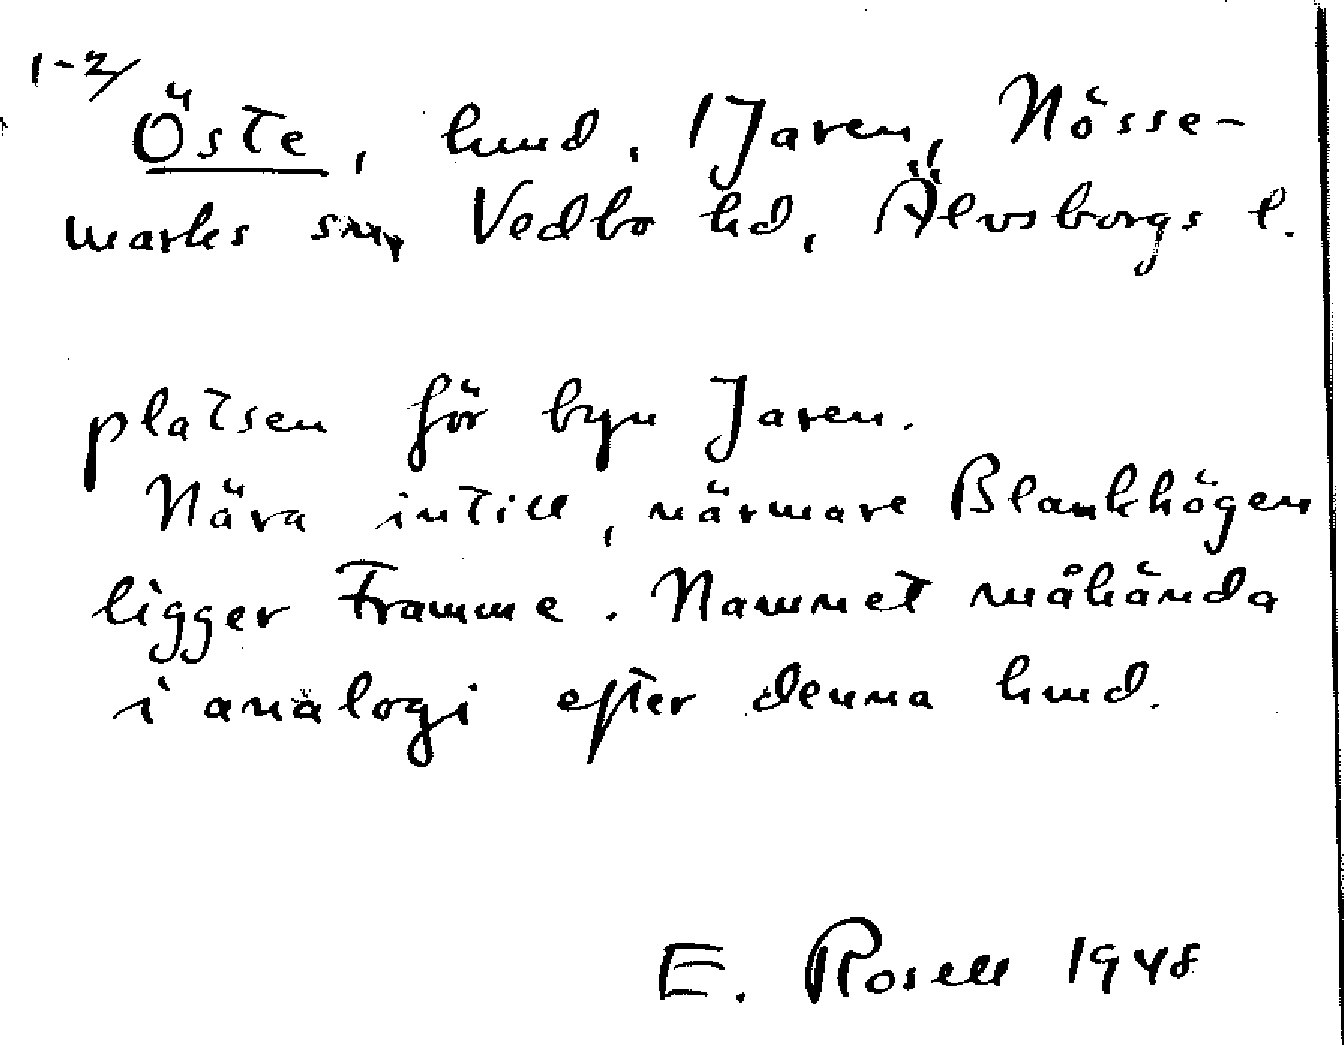 1-2/
Öste, hmd. | Jaren, Nösse-
marks sn, Vedbo hd, Älvsborgs l.
platsen för byn Jaren.
Nära intill, närmare Blankhögen
ligger Framme. Namnet måhända
i analogi efter denna hmd.
E. Rosell 1948